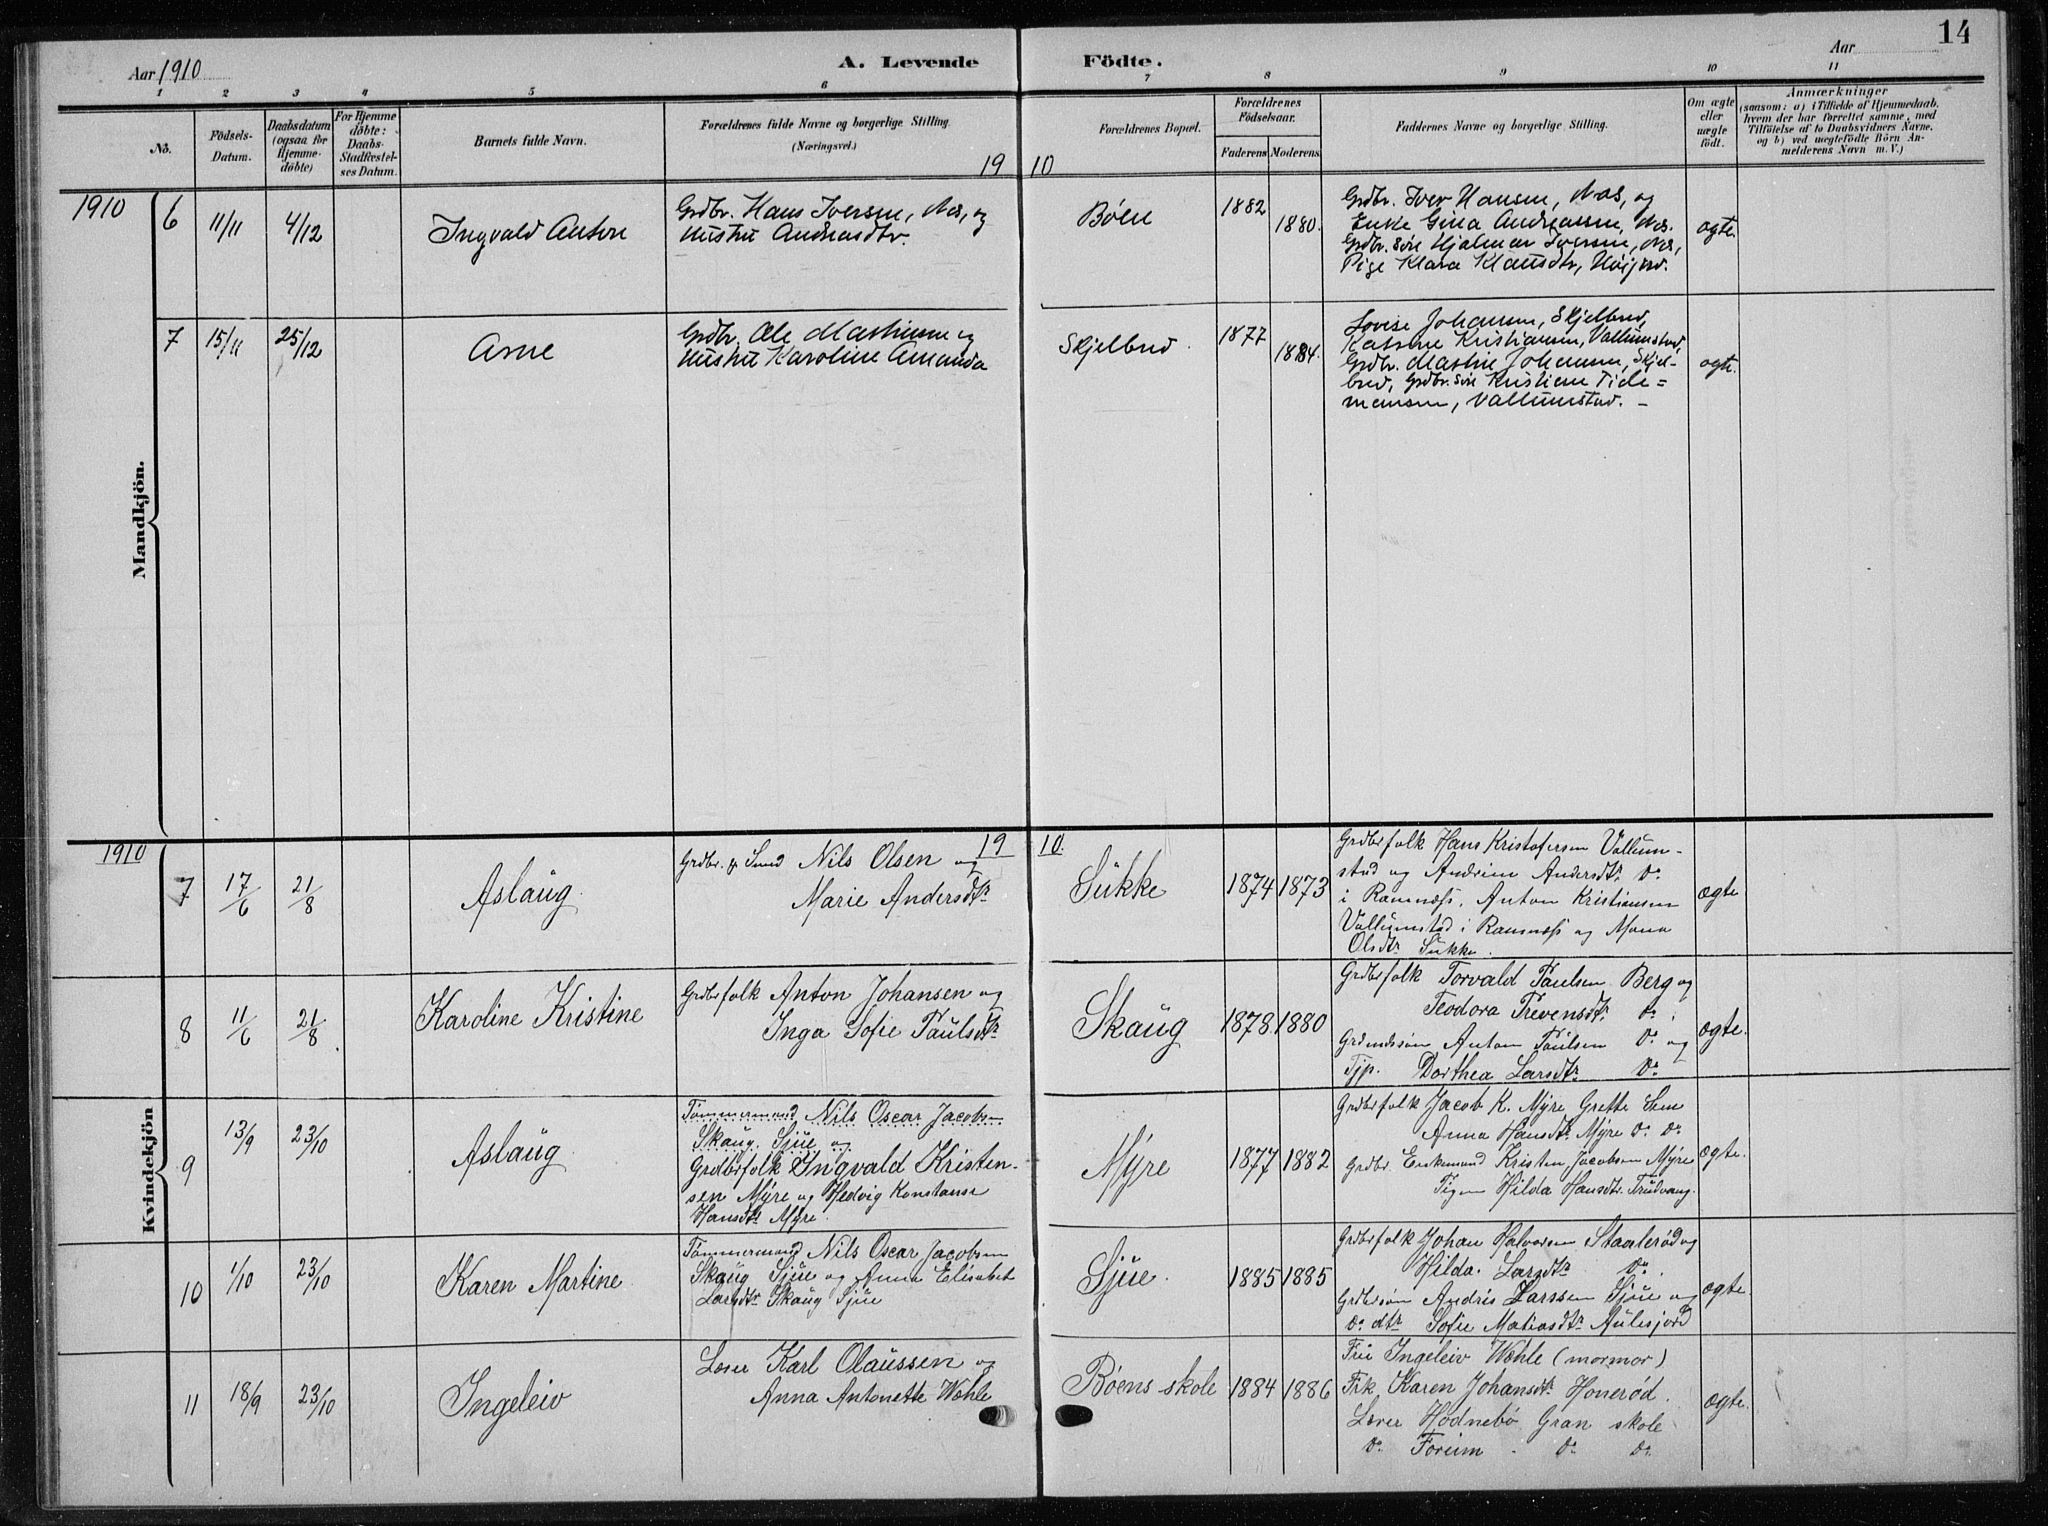 14
Aar 1910
A. Levende Födte.
Aar
1 2 3 4 5 6 7 8 9 10 11
No.
Födsels-
Datum.
Daabsdatum
(ogsaa for
Hjemme-
døbte)
For Hjemme
døbte:
Daabs-
Stadfæstel-
ses Datum.
Barnets fulde Navn.
Forældrenes fulde Navne og borgerlige Stilling.
(Næringsvei.)
Forældrenes Bopæl.
Forældrenes
Födselsaar.
Faderens Moderens
Faddernes Navne og borgerlige Stilling.
Om ægte
eller
uægte
födt.
Anmærkninger
(saasom: a) i Tilfælde af Hjemmedaab,
hvem der har forrettet samme, med
Tilföielse af to Daabsvidners Navne,
og b) ved uægtefödte Börn An-
melderens Navn m. V.)
19 10
1910
Mandkjön.
6 11/11 4/12
Ingvald Anton
Grdbr. Hans Iversen, Næs, og
Hustru Andreasdtr.
Bøen
1882 1880.
Grdbr. Iver Hansen, Næs, og
Enke Gina Andreassen, Næs.
Grdbr. søn Hjalmar Iversen, Næs,
Pige Klara Klausdtr,
ægte.
7 15/11 25/12
Arne
Grdbr. Ole Mathisen og
Hustru Karoline Amanda
Skjelbred.
1877 1884.
Lovise Johansen, Skjelbred,
Kristiansen, Vallumstad,
Grdbr. Martin Johansen, Skjel-
bred, Grdbr. søn Kristian Tide=
mansen, Vallumstad. -
ægte.
1910 19 10.
Kvindekjön
7 17/6 21/8
Aslaug
Grdbr. & Smed Nils Olsen og
Marie Andersdtr.
Sukke
1874 1873
Grdbrfolk Hans Kristofersen Vallum-
stad og Andrine Andersdtr. Do.
i Ramnæss, Anton Kristiansen
Vallumstad i Ramnæss og
Olsdtr. Sukke.
ægte
8 11/6 21/8
Karoline Kristine
Grdbrfolk Anton Johansen og
Inga Sofie Paulsdtr.
Skaug
1878. 1880
Grdbrfolk Torvald Paulsen Berg og
Teodora Do.
Anton Paulsen Do. og
Tjp. Dorthea Larsdtr. Do.
ægte.
9 13/9 23/10
Aslaug
Tømmermand Nils Oscar Jacobsen
Skaug, Sjue og
Grdbrfolk Ingvald Kristen-
sen Myre og Hedvig Konstanse
Hansdtr. Myre.
Myre
1877 1882
Grdbrfolk Jacob K. Myre Grette Sem
Anna Hansdtr. Myre Do. Do.
Grdbr. Enkemand Kristen Jacobsen Myre
Pigen Hilda Hansdtr. Trudvang.
ægte.
10 1/10 23/10
Karen Martine
Tømmermand Nils Oscar Jacobsen
Skaug Sjue og Anna Elisabet
Larsdtr. Skaug Sjue
Sjue.
1885 1885
Grdbrfolk Johan Halvorsen Staalerød og
Hilda Larsdtr. Do.
Grdbrsøn Andris Larssen Sjue og
Do. dtr. Sofie Matiasdtr. Aulesjord
ægte.
11 18/9 23/10
Ingeleiv
Lærer Karl Olaussen og
Anna Antonette Wehle
Bøens skole
1884 1886
Fru Ingeleiv Wehle (mormor)
Frk. Karen Johansdtr. Honerød.
Lærer Hodnebø Gran skole
Do. Foreim - Do. Do.
ægte.